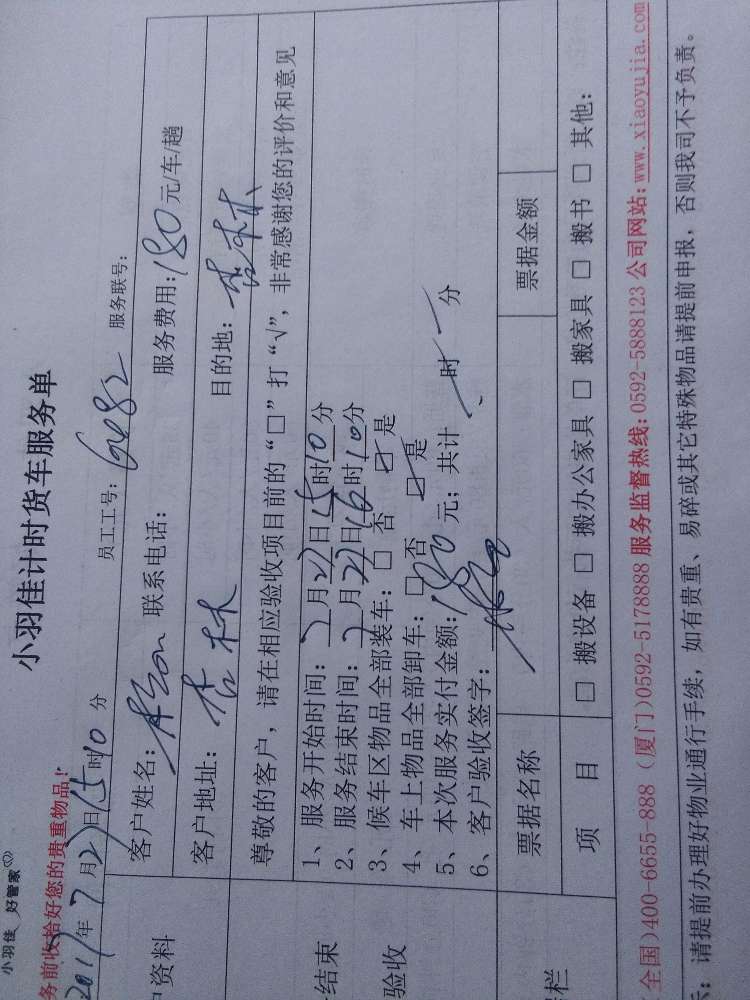 小羽佳 好管家
小羽佳计时货车服务单
务前收拾好您的贵重物品!
2017年7月27日15时10分 员工工号: 6482 服务联号:
户资料
客户姓名: 联系电话: 服务费用:180元/车/趟
客户地址: 杏林 目的地: 杏林
尊敬的客户，请在相应验收项目前的“□”打“√”，非常感谢您的评价和意见
结束
验收
1、服务开始时间: 7月27日15时10分
2、服务结束时间: 7月27日16时10分
3、候车区物品全部装车: □ 否 ☑ 是
4、车上物品全部卸车: □否 ☑ 是
5、本次服务实付金额:180元; 共计 时 分
6、客户验收签字:
栏
票据名称 票据金额
项 目 □ 搬设备 □ 搬办公家具 □ 搬家具 □ 搬书 □ 其他:
全国)400-6655-888 (厦门)0592-5178888 服务监督热线:0592-5888123 公司网站:www.xiaoyujia.com
: 请提前办理好物业通行手续，如有贵重、易碎或其它特殊物品请提前申报，否则我司不予负责。